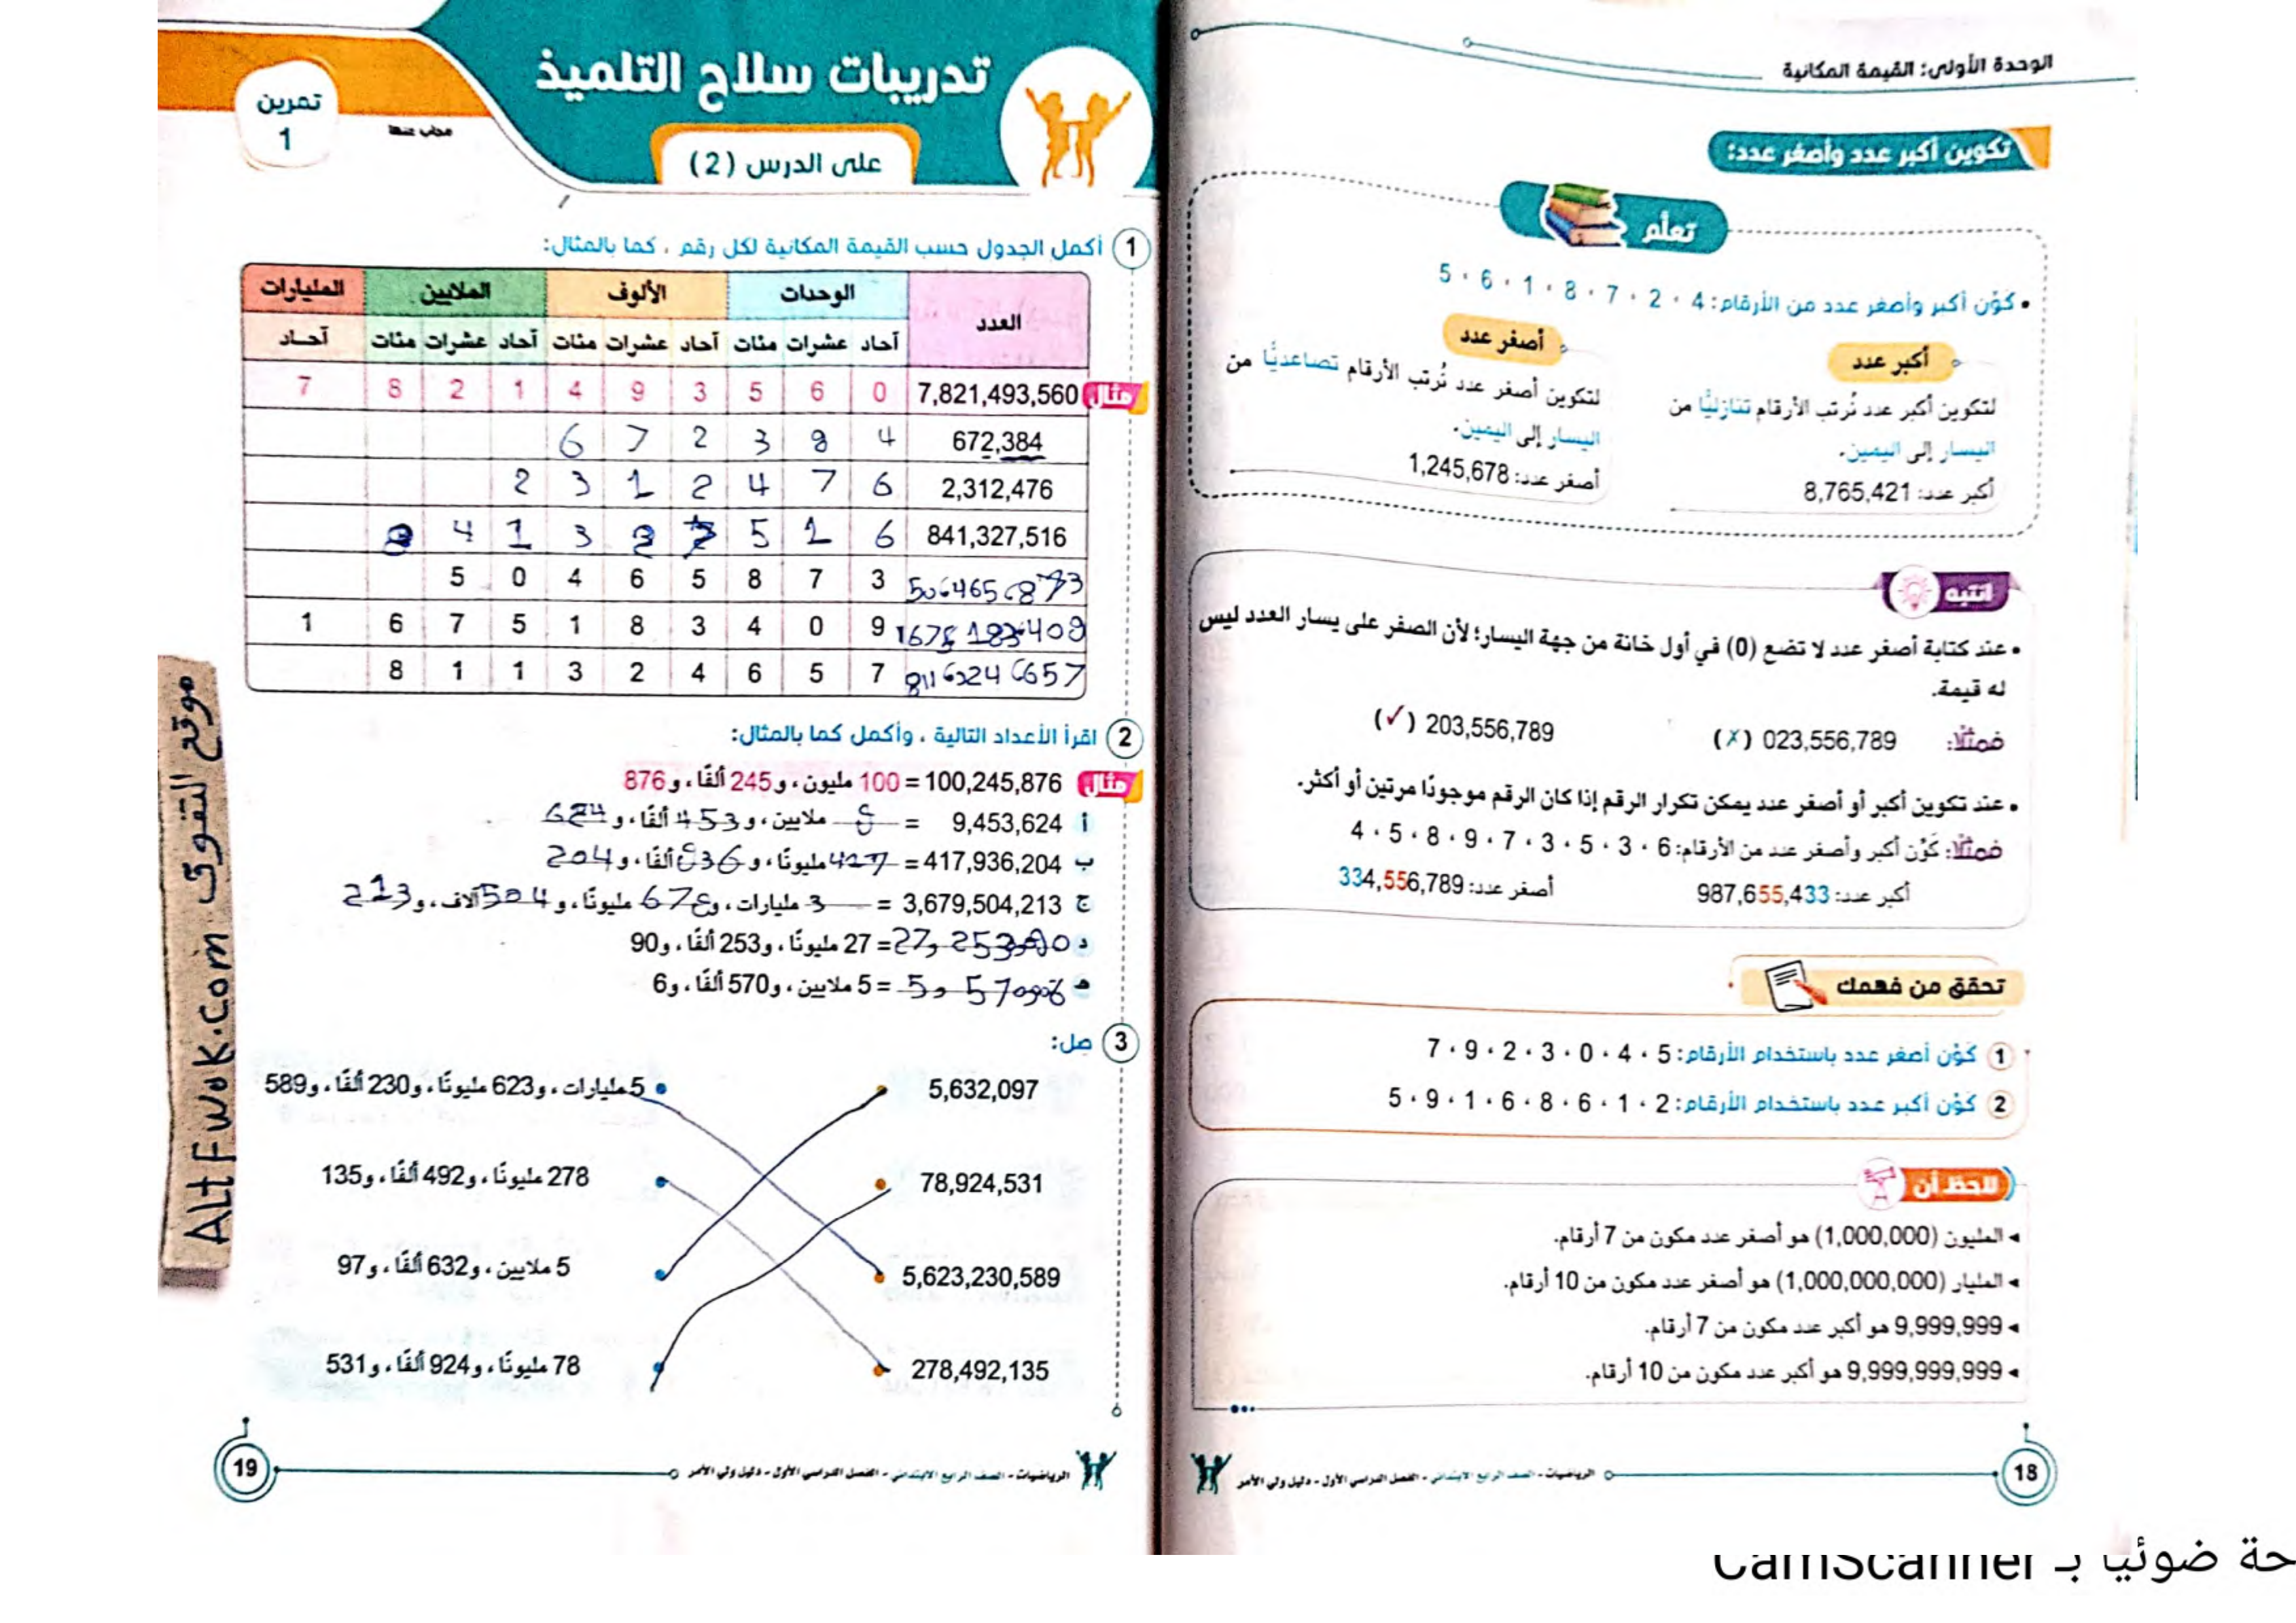 الوحدة الأولى: القيمة المكانية
تكوين أكبر عدد وأصغر عدد:
تعلَّم
• كَوِّن أكبر وأصغر عدد من الأرقام: 4 ، 2 ، 7 ، 8 ، 1 ، 6 ، 5
أكبر عدد
لتكوين أكبر عدد نُرتب الأرقام تنازليًّا من
اليسار إلى اليمين.
أكبر عدد: 8,765,421
أصغر عدد
لتكوين أصغر عدد نُرتب الأرقام تصاعديًّا من
اليسار إلى اليمين.
أصغر عدد: 1,245,678
انتبه
• عند كتابة أصغر عدد لا تضع (0) في أول خانة من جهة اليسار؛ لأن الصفر على يسار العدد ليس
له قيمة.
فمثلًا: 023,556,789 (✗) 203,556,789 (✓)
• عند تكوين أكبر أو أصغر عدد يمكن تكرار الرقم إذا كان الرقم موجودًا مرتين أو أكثر.
فمثلًا: كَوِّن أكبر وأصغر عدد من الأرقام: 6 ، 3 ، 5 ، 3 ، 7 ، 9 ، 8 ، 5 ، 4
أكبر عدد: 987,655,433 أصغر عدد: 334,556,789
تحقق من فهمك
1 كَوِّن أصغر عدد باستخدام الأرقام: 5 ، 4 ، 0 ، 3 ، 2 ، 9 ، 7
2 كَوِّن أكبر عدد باستخدام الأرقام: 2 ، 1 ، 6 ، 8 ، 6 ، 1 ، 9 ، 5
لاحظ أن
◂ المليون (1,000,000) هو أصغر عدد مكون من 7 أرقام.
◂ المليار (1,000,000,000) هو أصغر عدد مكون من 10 أرقام.
◂ 9,999,999 هو أكبر عدد مكون من 7 أرقام.
◂ 9,999,999,999 هو أكبر عدد مكون من 10 أرقام.
18 الرياضيات - الصف الرابع الابتدائي - الفصل الدراسي الأول - دليل ولي الأمر
تدريبات سلاح التلميذ
على الدرس (2)
تمرين
1
مجاب عنها
1 أكمل الجدول حسب القيمة المكانية لكل رقم ، كما بالمثال:
العدد الوحدات الألوف الملايين المليارات
آحاد عشرات مئات آحاد عشرات مئات آحاد عشرات مئات آحاد
مثال 7,821,493,560 0 6 5 3 9 4 1 2 8 7
672,384 4 8 3 2 7 6
2,312,476 6 7 4 2 1 3 2
841,327,516 6 1 5 7 2 3 1 4 8
3 7 8 5 6 4 0 5
9 0 4 3 8 1 5 7 6 1
7 5 6 4 2 3 1 1 8
2 اقرأ الأعداد التالية ، وأكمل كما بالمثال:
مثال 100,245,876 = 100 مليون، و245 ألفًا، و876
أ 9,453,624 = 9 ملايين، و453 ألفًا، و624
ب 417,936,204 = 417 مليونًا، و936 ألفًا، و204
ج 3,679,504,213 = 3 مليارات، و679 مليونًا، و504 آلاف، و213
د = 27 مليونًا، و253 ألفًا، و90
هـ = 5 ملايين، و570 ألفًا، و6
3 صِل:
5,632,097 5 مليارات، و623 مليونًا، و230 ألفًا، و589
78,924,531 278 مليونًا، و492 ألفًا، و135
5,623,230,589 5 ملايين، و632 ألفًا، و97
278,492,135 78 مليونًا، و924 ألفًا، و531
الرياضيات - الصف الرابع الابتدائي - الفصل الدراسي الأول - دليل ولي الأمر 19
موقع التفوق ALtFwok.com
حة ضوئيا بـ CamScanner